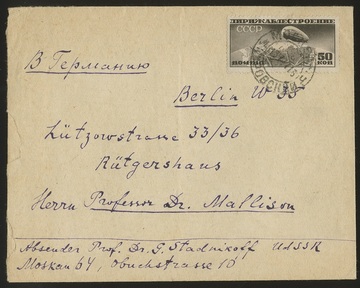 ДИРИЖАБЛЕСТРОЕНИЕ
СССР
50
КОП
В Германию
Berlin W 35
Lützowstrasse 33/36
Rütgershaus
Herrn Professor Dr. Mallison
Absender Prof. Dr. G. Stadnikoff UdSSR
Moskau 64, Obuchstrasse 10